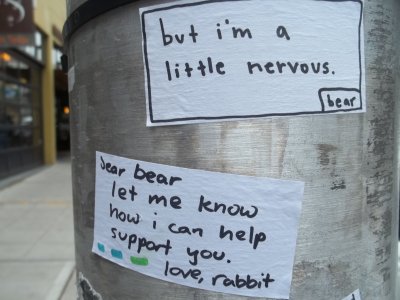 but i'm a
little nervous.
bear
Dear bear
let me know
how i can help
support you.
love, rabbit